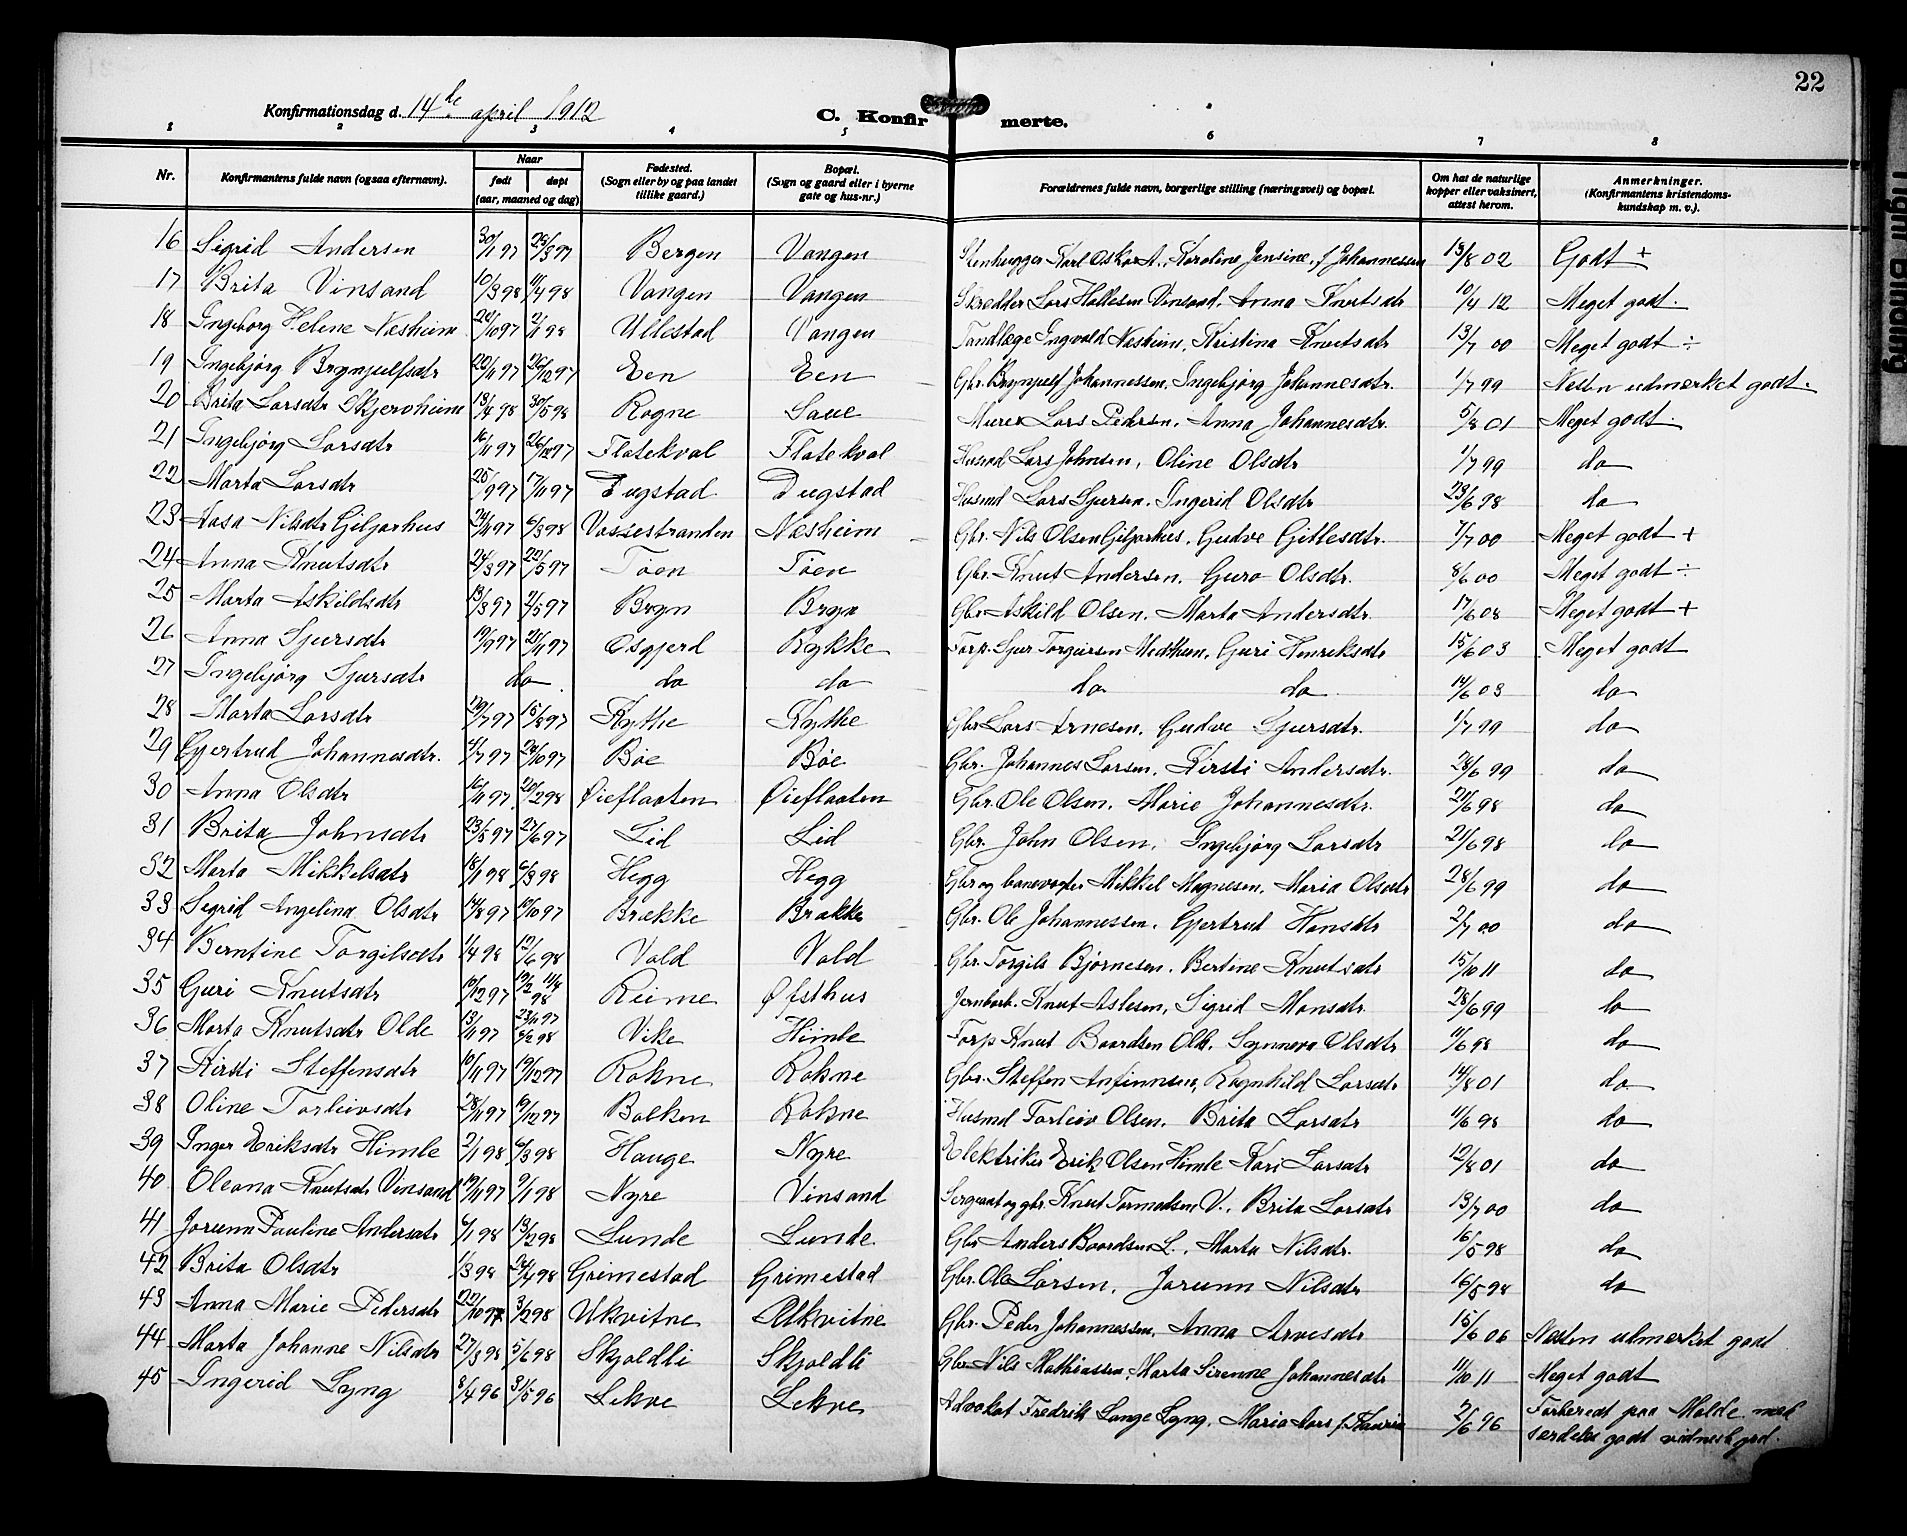 22
Konfirmationsdag d. 14de april 1912
C. Konfirmerte.
1 2 3 4 5 6 7 8
Nr. Konfirmantens fulde navn (ogsaa efternavn). Naar født døpt (aar, maaned og dag) Fødested. (Sogn eller by og paa landet tillike gaard.) Bopæl. (Sogn og gaard eller i byerne gate og hus-nr.) Forældrenes fulde navn, borgerlige stilling (næringsvei) og bopæl. Om hat de naturlige kopper eller vaksinert, attest herom. Anmerkninger. (Konfirmantens kristendoms-kundskap m. v.).
16 Sigrid Andersen 30/1 97 28/3 97 Bergen Vangen Stenhugger Karl Oskar A., Karoline Jensine, f Johannessen 13/8 02 Godt +
17 Brita Vinsand 10/3 98 11/4 98 Vangen Vangen Skrædder Lars Hallesen Vinsand, Anna Knutsdtr 10/4 12 Meget godt.
18 Ingeborg Helene Næsheim 20/10 97 2/1 98 Ullestad Vangen Tandlæge Ingvald Næsheim, Kristina Knutsdtr 13/7 00 Meget godt ÷
19 Ingebjørg Brynjulfsdtr 22/11 97 26/12 97 Een Een Gbr. Brynjulf Johannessen, Ingebjørg Johannesdtr. 1/7 99 Næsten utmerket godt.
20 Brita Larsdtr Skjerveheim 13/4 98 30/5 98 Rogne Saue Murer Lars Pedersn, Anna Johannesdtr. 5/8 01 Meget godt.
21 Ingebjørg Larsdtr 16/11 97 26/12 97 Flatekval Flatekval Husmd Lars Johnsen, Oline Olsdtr 1/7 99 do
22 Marta Larsdtr 25/9 97 17/11 97 Dugstad Dugstad Husmd Lars Sjursen, Ingerid Olsdtr 23/6 98 do
23 Aasa Nilsdtr Giljarhus 24/11 97 6/3 98 Vossestranden Næsheim Gbr. Nils Olsen Giljarhus, Gudve Gitlesdtr. 7/7 00 Meget godt +
24 Anna Knutsdtr 24/3 97 22/5 97 Tøen Tøen Gbr. Knut Andersen, Guro Olsdtr. 8/6 00 Meget godt ÷
25 Marta Askildsdtr 13/3 97 2/5 97 Bryn Bryn Gbr. Askild Olsen, Marta Andersdtr. 17/6 08 Meget godt +
26 Anna Sjursdtr 19/9 97 21/11 97 Osgjerd Rykke Torp. Sjur Torgersen Medhus, Guri Henriksdtr 15/6 03 Meget godt
27 Ingebjørg Sjursdtr do do do do do 14/6 03 do
28 Marta Larsdtr 29/7 97 15/8 97 Kythe Kythe Gbr Lars Arnesen, Gudve Sjursdtr. 1/7 99 do
29 Gjertrud Johannesdtr. 4/7 97 24/10 97 Bøe Bøe Gbr. Johannes Larsen, Kirsti Andersdtr. 28/6 99 do
30 Anna Olsdtr 16/11 97 20/2 98 Øieflaaten Øieflaaten Gbr. Ole Olsen, Marie Johannesdtr. 21/6 98 do
31 Brita Johnsdtr 23/5 97 27/6 97 Lid Lid Gbr. John Olsen, Ingebjørg Larsdtr 21/6 98 do
32 Marta Mikkelsdtr 18/1 98 6/3 98 Hegg Hegg Gbr og banevogter Mikkel Magnesen, Maria Olsdtr 28/6 99 do
33 Sigrid Angelina Olsdtr 14/8 97 10/10 97 Brække Brække Gbr. Ole Johannessen, Gjertrud Hansdtr 2/7 00 do
34 Berntine Torgilsdtr 1/4 98 12/6 98 Vold Vold Gbr. Torgils Bjørnesen, Bertine Knutsdtr 15/10 11 do
35 Guri Knutsdtr 10/12 97 19/12 11/4 98 Reime Øfsthus Jernbarb. Knut Aslesen, Sigrid Monsdtr 28/6 99 do
36 Marta Knutsdtr Olde 13/11 97 23/11 97 6/2 98 Vike Himle Torp Knut Baardsen Olde, Synneva Olsdtr 11/6 98 do
37 Kirsti Steffensdtr 10/11 97 19/12 97 Rokne Rokne Gbr. Steffen Anfinnsen, Ragnhild Larsdtr 14/8 01 do
38 Oline Torleivsdtr 28/11 97 19/12 97 Bolken Rokne Husmd Torleiv Olsen, Brita Larsdtr 11/6 98 do
39 Inger Eriksdtr Himle 2/1 98 6/3 98 Hauge Nyre Elektriker Erik Olsen Himle Kari Larsdtr 12/8 01 do
40 Oleana Knutsdtr Vinsand 19/11 97 9/1 98 Nyre Vinsand Sergeant og gbr. Knut Tormodsen V., Brita Larsdtr 13/7 00 do
41 Jorunn Pauline Andersdtr 6/1 98 13/2 98 Lunde Lunde Gbr Anders Baardsen L., Marta Nilsdtr. 16/5 98 do
42 Brita Olsdtr 1/3 98 24/4 98 Grimestad Grimestad Gbr. Ole Larsen, Jorunn Nilsdtr 16/5 98 do
43 Anna Marie Pedersdtr 22/10 97 3/2 98 Ukvitne Ukvitne Gbr. Peder Johannessen, Anna Arvesdtr 15/6 06 Næsten utmerket godt
44 Marta Johanne Nilsdtr 27/3 98 5/6 98 Skjoldli Skjoldli Gbr. Nils Mathiassen, Marta Sirenne Johannesdtr 11/10 11 Meget godt
45 Ingerid Lyng 8/4 96 31/5 96 Lekve Lekve Advokat Fredrik Lange Lyng, Maria Aars f. 9/6 96 Forberedt paa Molde med særdeles godt vidnesbyrd.